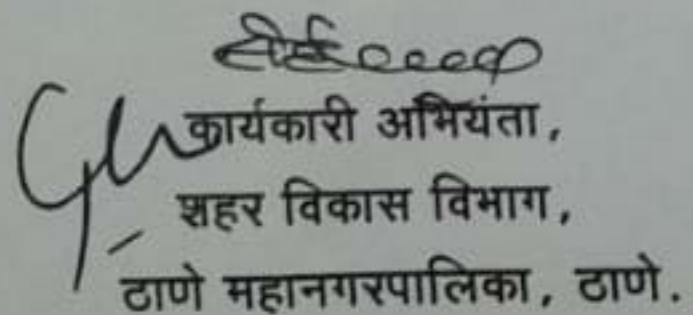 कार्यकारी अभियंता,
शहर विकास विभाग,
ठाणे महानगरपालिका, ठाणे.